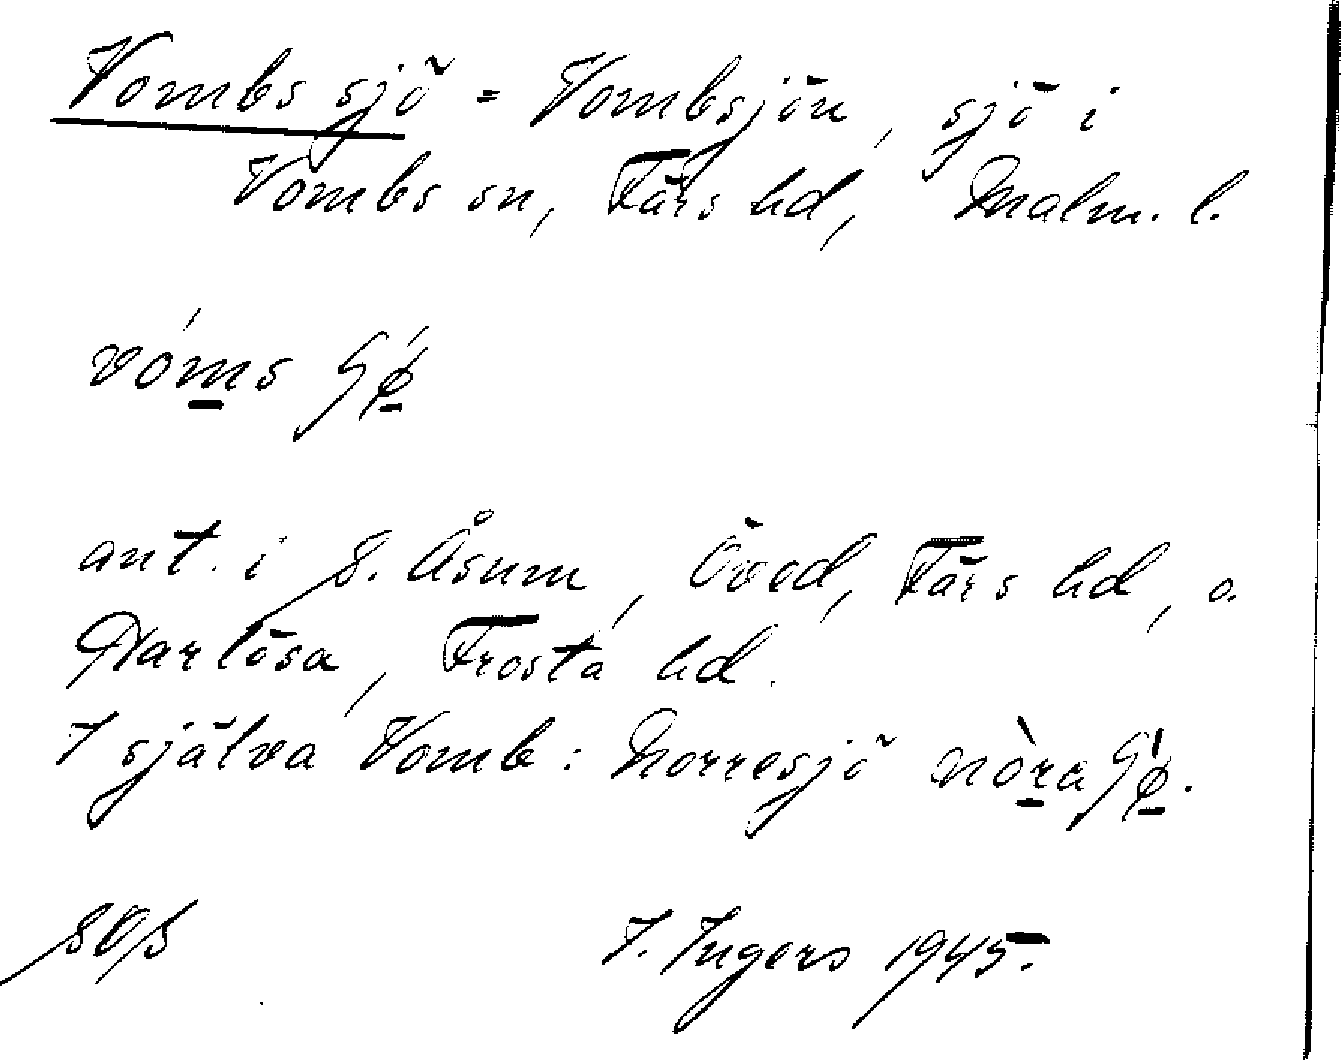 Vombs sjö = Vombsjön, sjö i
Vombs sn, Färs hd, Malm. l.
vóms
ant. i S. Åsum, Öved, Färs hd, o.
Harlösa, Frosta hd.
I själva Vomb: Norresjö nòra
SOS
I. Ingers 1945.